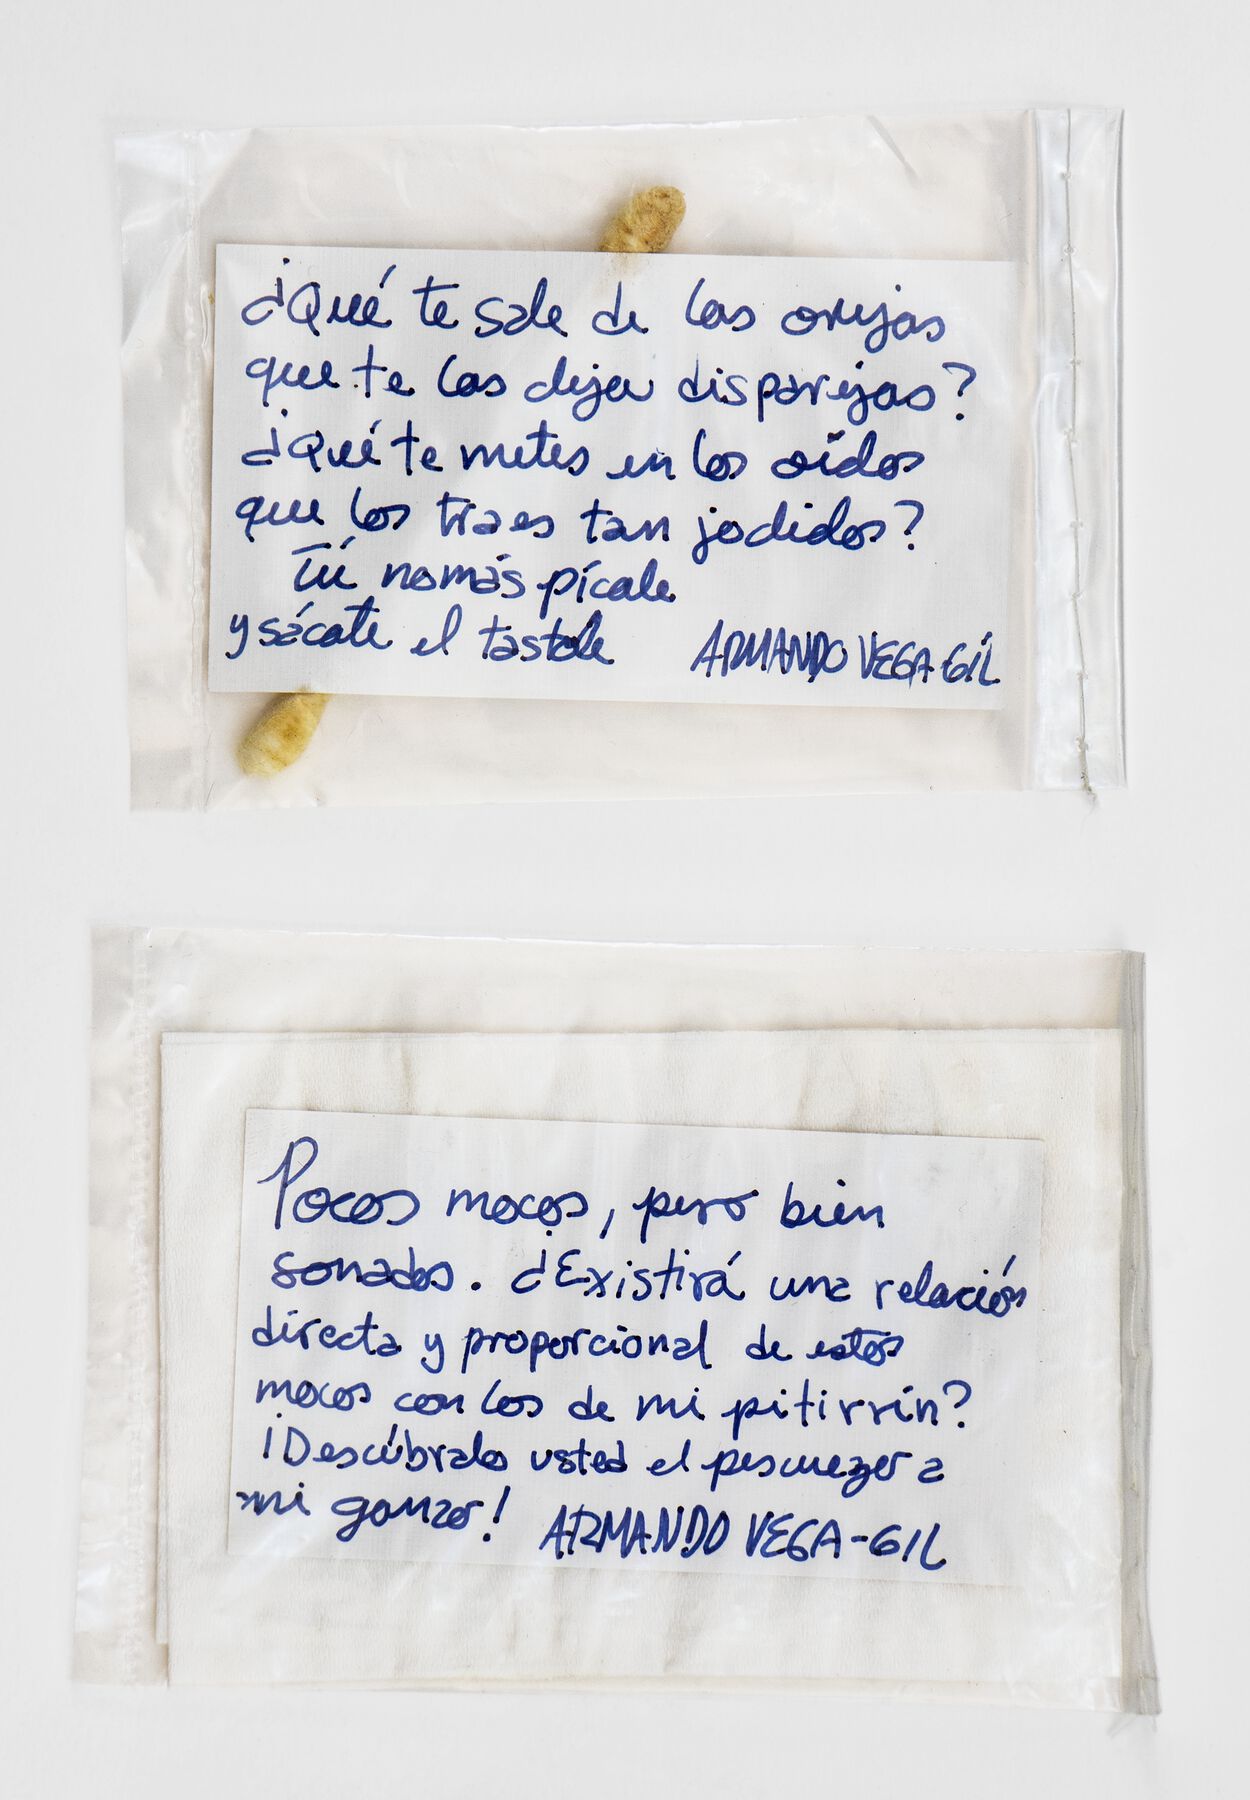 ¿Qué te sale de las orejas
que te las deja disparejas?
¿Qué te metes en los oídos
que los traes tan jodidos?
Tú nomás pícale
y sácate el tastole ARMANDO VEGA-GIL
Pocos mocos, pero bien
sonados. ¿Existirá una relación
directa y proporcional de estos
mocos con los de mi pitirrín?
¡Descúbralo usted el pescuezer a
mi ganzo! ARMANDO VEGA-GIL